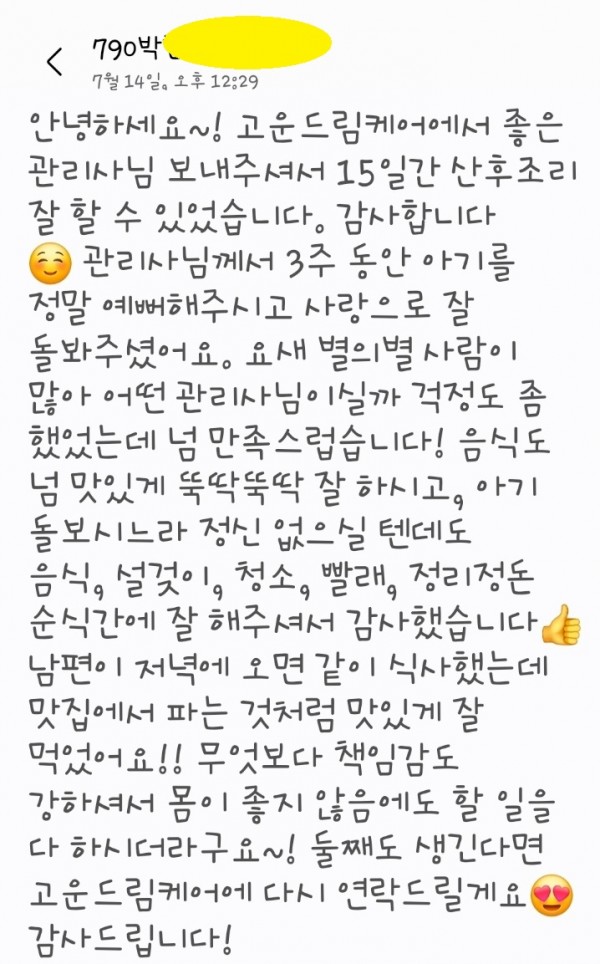 790박
7월 14일, 오후 12:29
안녕하세요~! 고운드림케어에서 좋은
관리사님 보내주셔서 15일간 산후조리
잘 할 수 있었습니다. 감사합니다
☺️ 관리사님께서 3주 동안 아기를
정말 예뻐해주시고 사랑으로 잘
돌봐주셨어요. 요새 별의별 사람이
많아 어떤 관리사님이실까 걱정도 좀
했었는데 넘 만족스럽습니다! 음식도
넘 맛있게 뚝딱뚝딱 잘 하시고, 아기
돌보시느라 정신 없으실 텐데도
음식, 설겆이, 청소, 빨래, 정리정돈
순식간에 잘 해주셔서 감사했습니다👍
남편이 저녁에 오면 같이 식사했는데
맛집에서 파는 것처럼 맛있게 잘
먹었어요!! 무엇보다 책임감도
강하셔서 몸이 좋지 않음에도 할 일을
다 하시더라구요~! 둘째도 생긴다면
고운드림케어에 다시 연락드릴게요😍
감사드립니다!